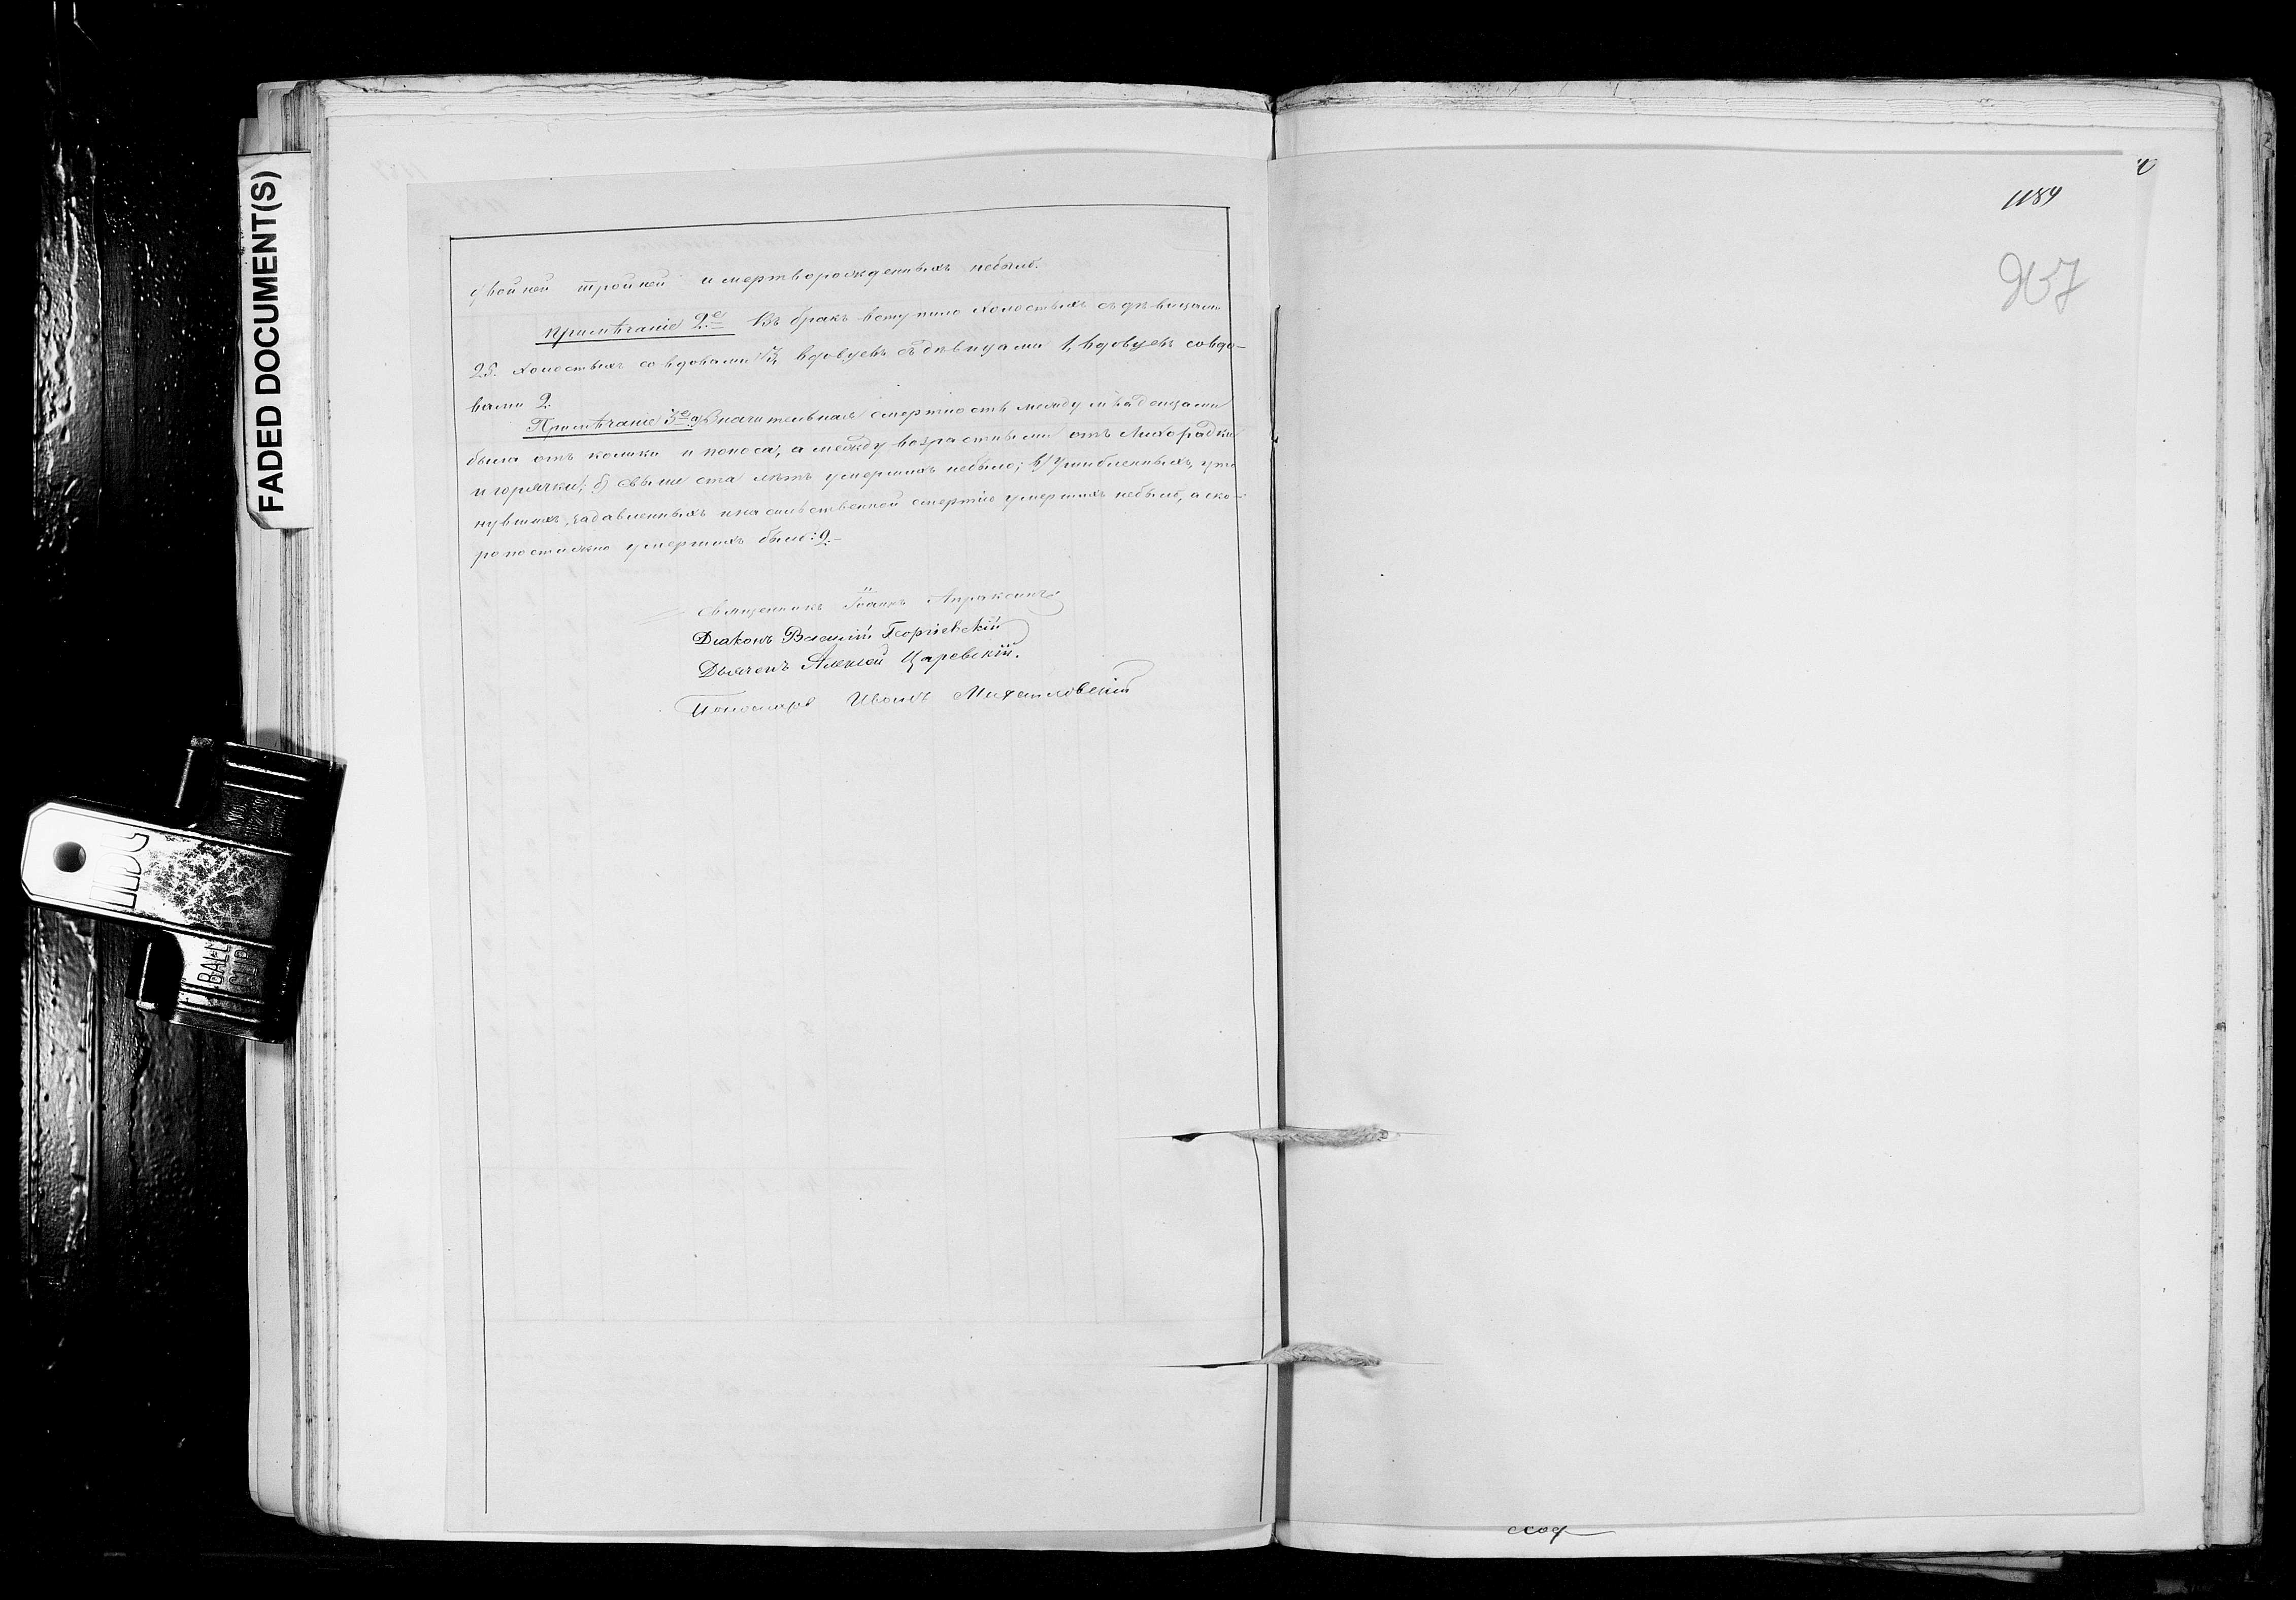 FADED DOCUMENT(S)
двойней тройней и мертворожденныхъ небыло.
Примѣчаніе 2.е Въ бракъ вступило холостыхъ съ дѣвицами
25. холостыхъ со вдовами 3, вдовцевъ съ дѣвицами 1, вдовцевъ со вдо-
вами 2.
Примѣчаніе 3е а) Значительная смертность между младенцами
была отъ колики и поноса, а между возрастными отъ лихорадки
и горячки; б) свыше ста лѣтъ умершихъ небыло; в) Ушибленныхъ, уто
нувшихъ, задавленныхъ и насильственной смертію умершихъ небыло, а ско-
ропостижно умершихъ было: 2.
Священникъ Іоаннъ Апраксинъ
Діаконъ Василій Георгіевскій
Дьячекъ Алексѣй Царевскій.
Пономарь Иванъ Михайловскій
1184
957
BALL
CLIP